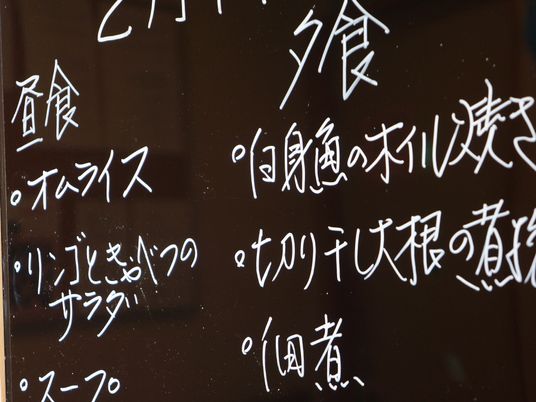 2月
昼食
・オムライス
・リンゴときゃべつの
サラダ
・スープ
夕食
・白身魚のホイル焼き
・切り干し大根の煮
・佃煮